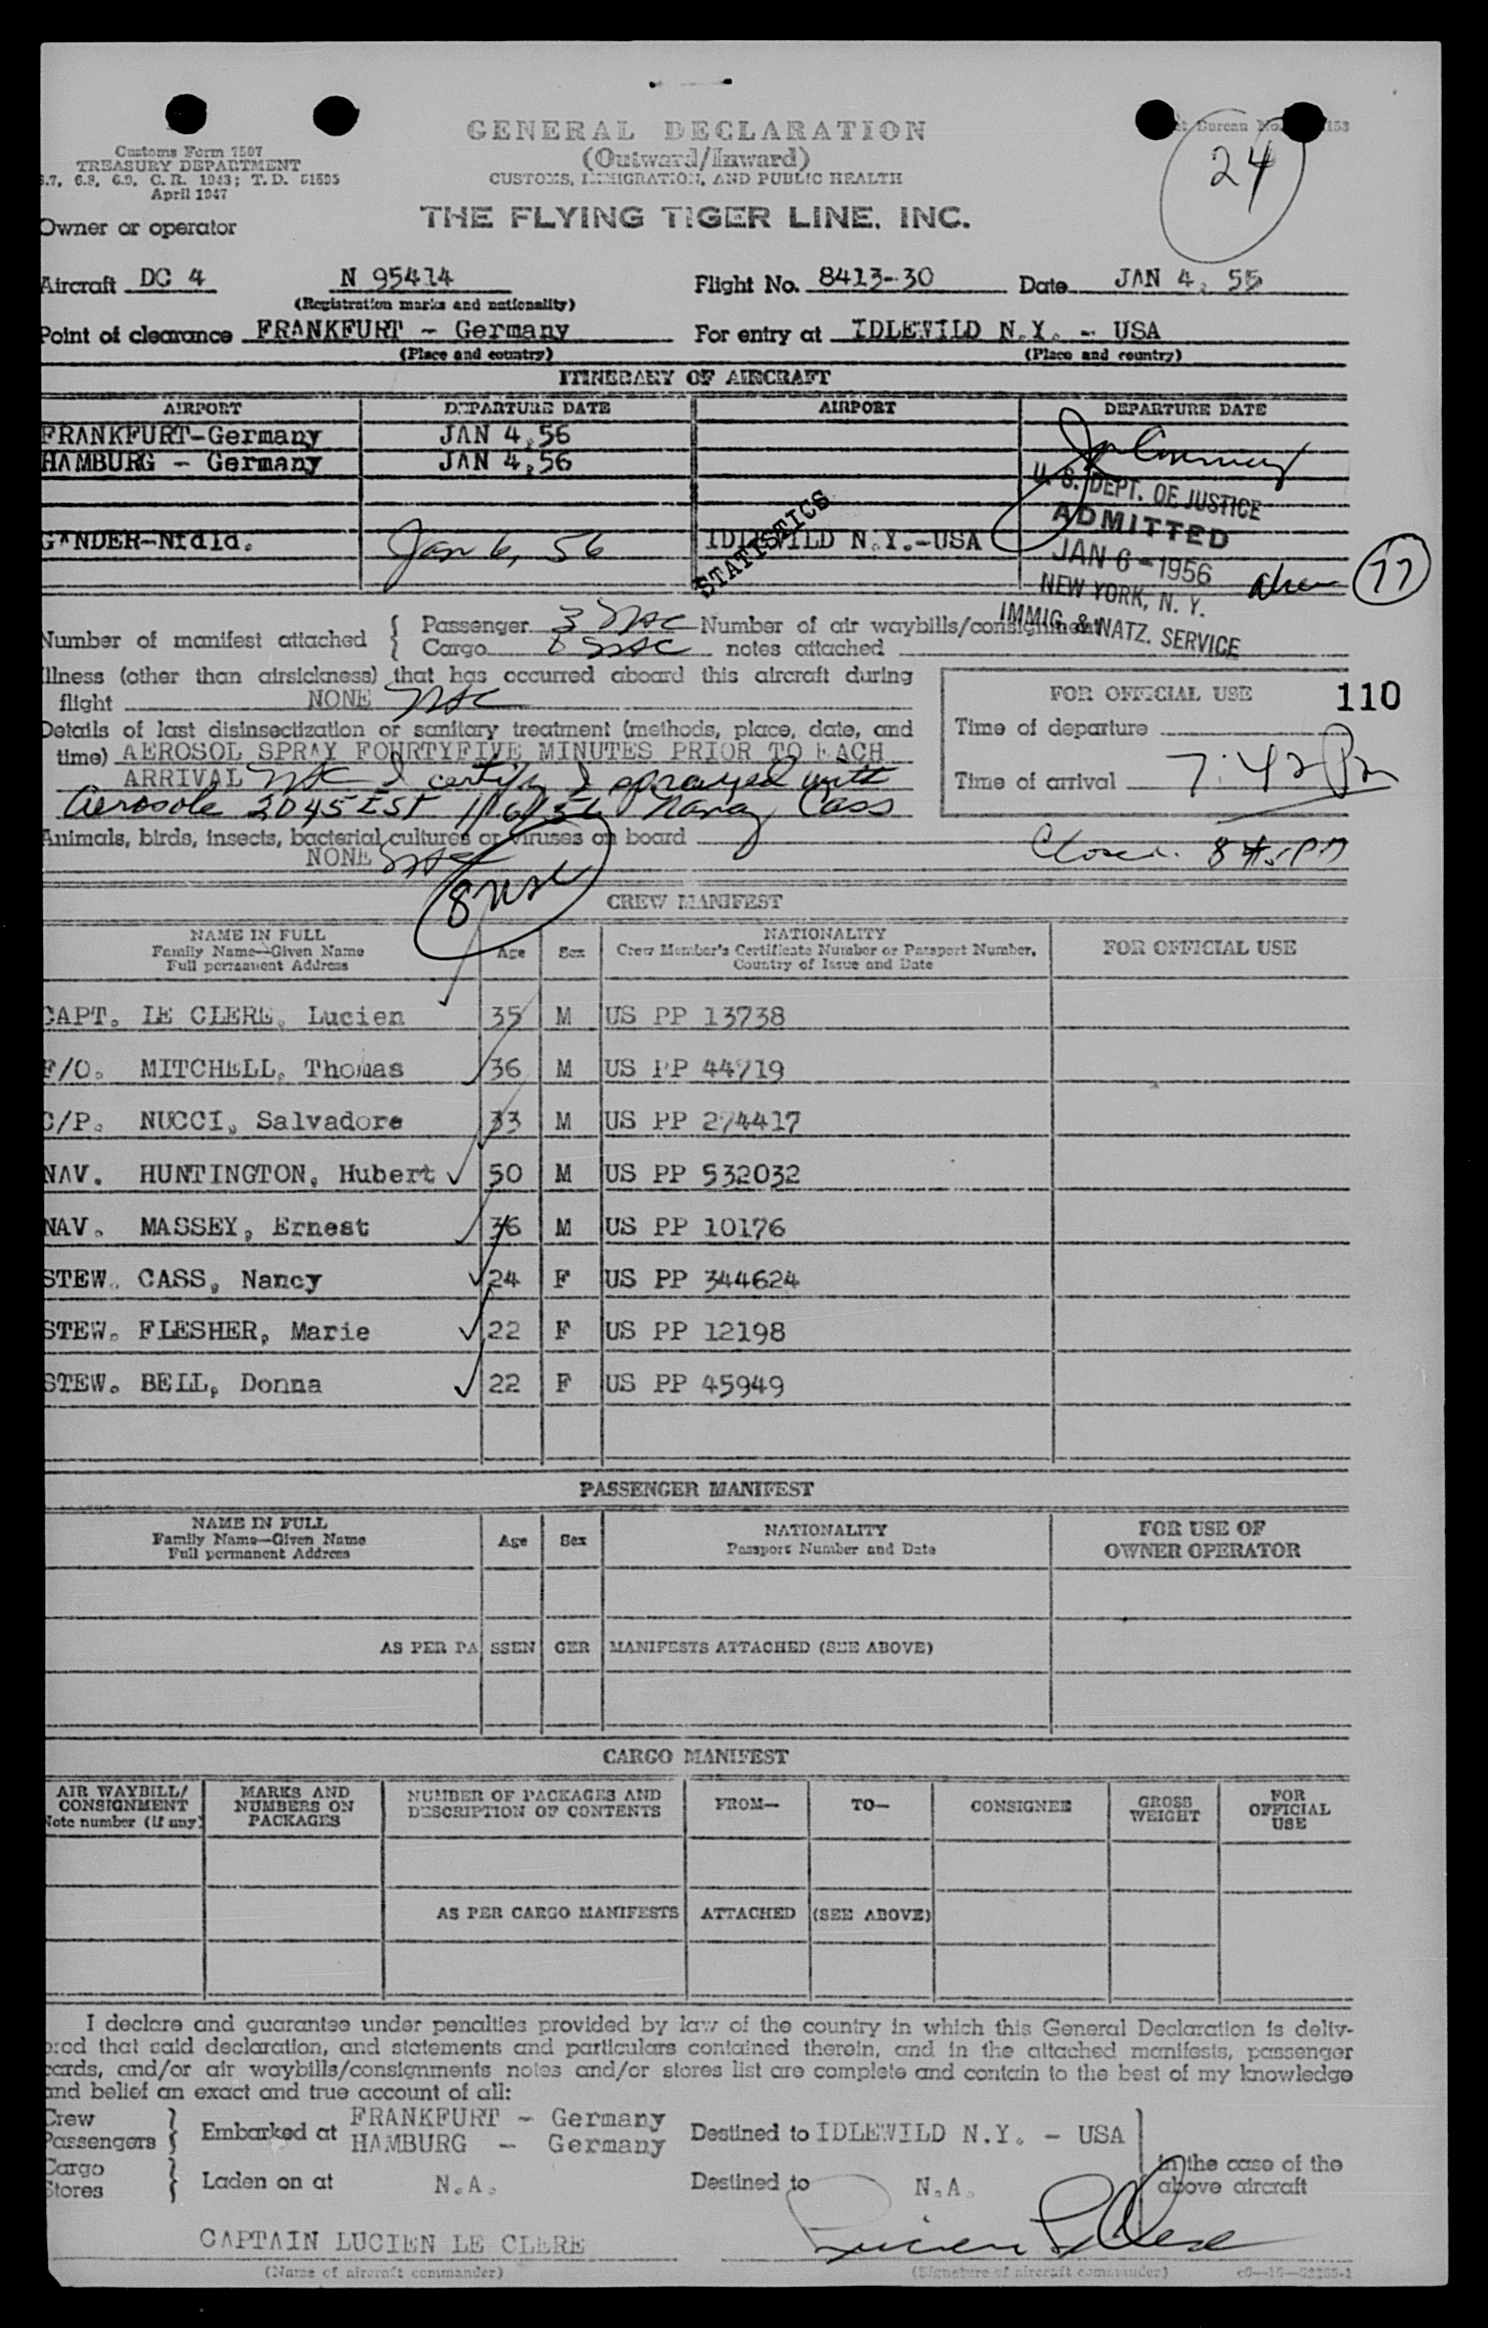 GENERAL DECLARATION
(Outward/Inward)
CUSTOMS, IMMIGRATION, AND PUBLIC HEALTH
THE FLYING TIGER LINE, INC.
Customs Form 7507
TREASURY DEPARTMENT
6.7, 6.8, 6.9, C. R. 1943; T. D. 51595
April 1947
Bureau No.
24
Owner or operator
Aircraft DC 4 N 95414 Flight No. 8413-30 Date JAN 4, 56
(Registration marks and nationality)
Point of clearance FRANKFURT - Germany For entry at IDLEWILD N.Y. - USA
(Place and country) (Place and country)
ITINERARY OF AIRCRAFT
AIRPORT DEPARTURE DATE AIRPORT DEPARTURE DATE
FRANKFURT-Germany JAN 4,56
HAMBURG - Germany JAN 4,56
GANDER-Nfdld. Jan 6, 56 IDLEWILD N.Y.-USA
STATISTICS
U. S. DEPT. OF JUSTICE
ADMITTED
JAN 6 - 1956
NEW YORK, N. Y.
IMMIG. & NATZ. SERVICE
77
Number of manifest attached { Passenger 3 NAC Number of air waybills/consignment
Cargo 8 NAC notes attached
Illness (other than airsickness) that has occurred aboard this aircraft during
flight NONE NAC
Details of last disinsectization or sanitary treatment (methods, place, date, and
time) AEROSOL SPRAY FOURTYFIVE MINUTES PRIOR TO EACH
ARRIVAL NAC I certify I sprayed with
Aerosole 2045 EST 1/6/56 Nancy Cass
Animals, birds, insects, bacterial cultures or viruses on board
NONE NAC
FOR OFFICIAL USE 110
Time of departure
Time of arrival 7:42 Pm
8
CREW MANIFEST
NAME IN FULL
Family Name—Given Name
Full permanent Address
Age Sex
NATIONALITY
Crew Member's Certificate Number or Passport Number,
Country of Issue and Date
FOR OFFICIAL USE
CAPT. LE CLERE, Lucien 35 M US PP 13738
F/O. MITCHELL, Thomas 36 M US PP 44719
C/P. NUCCI, Salvadore 33 M US PP 274417
NAV. HUNTINGTON, Hubert 50 M US PP 532032
NAV. MASSEY, Ernest 36 M US PP 10176
STEW. CASS, Nancy 24 F US PP 344624
STEW. FLESHER, Marie 22 F US PP 12198
STEW. BELL, Donna 22 F US PP 45949
PASSENGER MANIFEST
NAME IN FULL
Family Name—Given Name
Full permanent Address
Age Sex
NATIONALITY
Passport Number and Date
FOR USE OF
OWNER OPERATOR
AS PER PASSENGER MANIFESTS ATTACHED (SEE ABOVE)
CARGO MANIFEST
AIR WAYBILL/
CONSIGNMENT
Note number (if any)
MARKS AND
NUMBERS ON
PACKAGES
NUMBER OF PACKAGES AND
DESCRIPTION OF CONTENTS
FROM— TO— CONSIGNEE
GROSS
WEIGHT
FOR
OFFICIAL
USE
AS PER CARGO MANIFESTS ATTACHED (SEE ABOVE)
I declare and guarantee under penalties provided by law of the country in which this General Declaration is deliv-
ered that said declaration, and statements and particulars contained therein, and in the attached manifests, passenger
cards, and/or air waybills/consignments notes and/or stores list are complete and contain to the best of my knowledge
and belief an exact and true account of all:
Crew
Passengers } Embarked at FRANKFURT - Germany
HAMBURG - Germany Destined to IDLEWILD N.Y. - USA
Cargo
Stores } Laden on at N.A. Destined to N.A.
in the case of the
above aircraft
CAPTAIN LUCIEN LE CLERE Lucien Le Clere
(Name of aircraft commander) (Signature of aircraft commander)